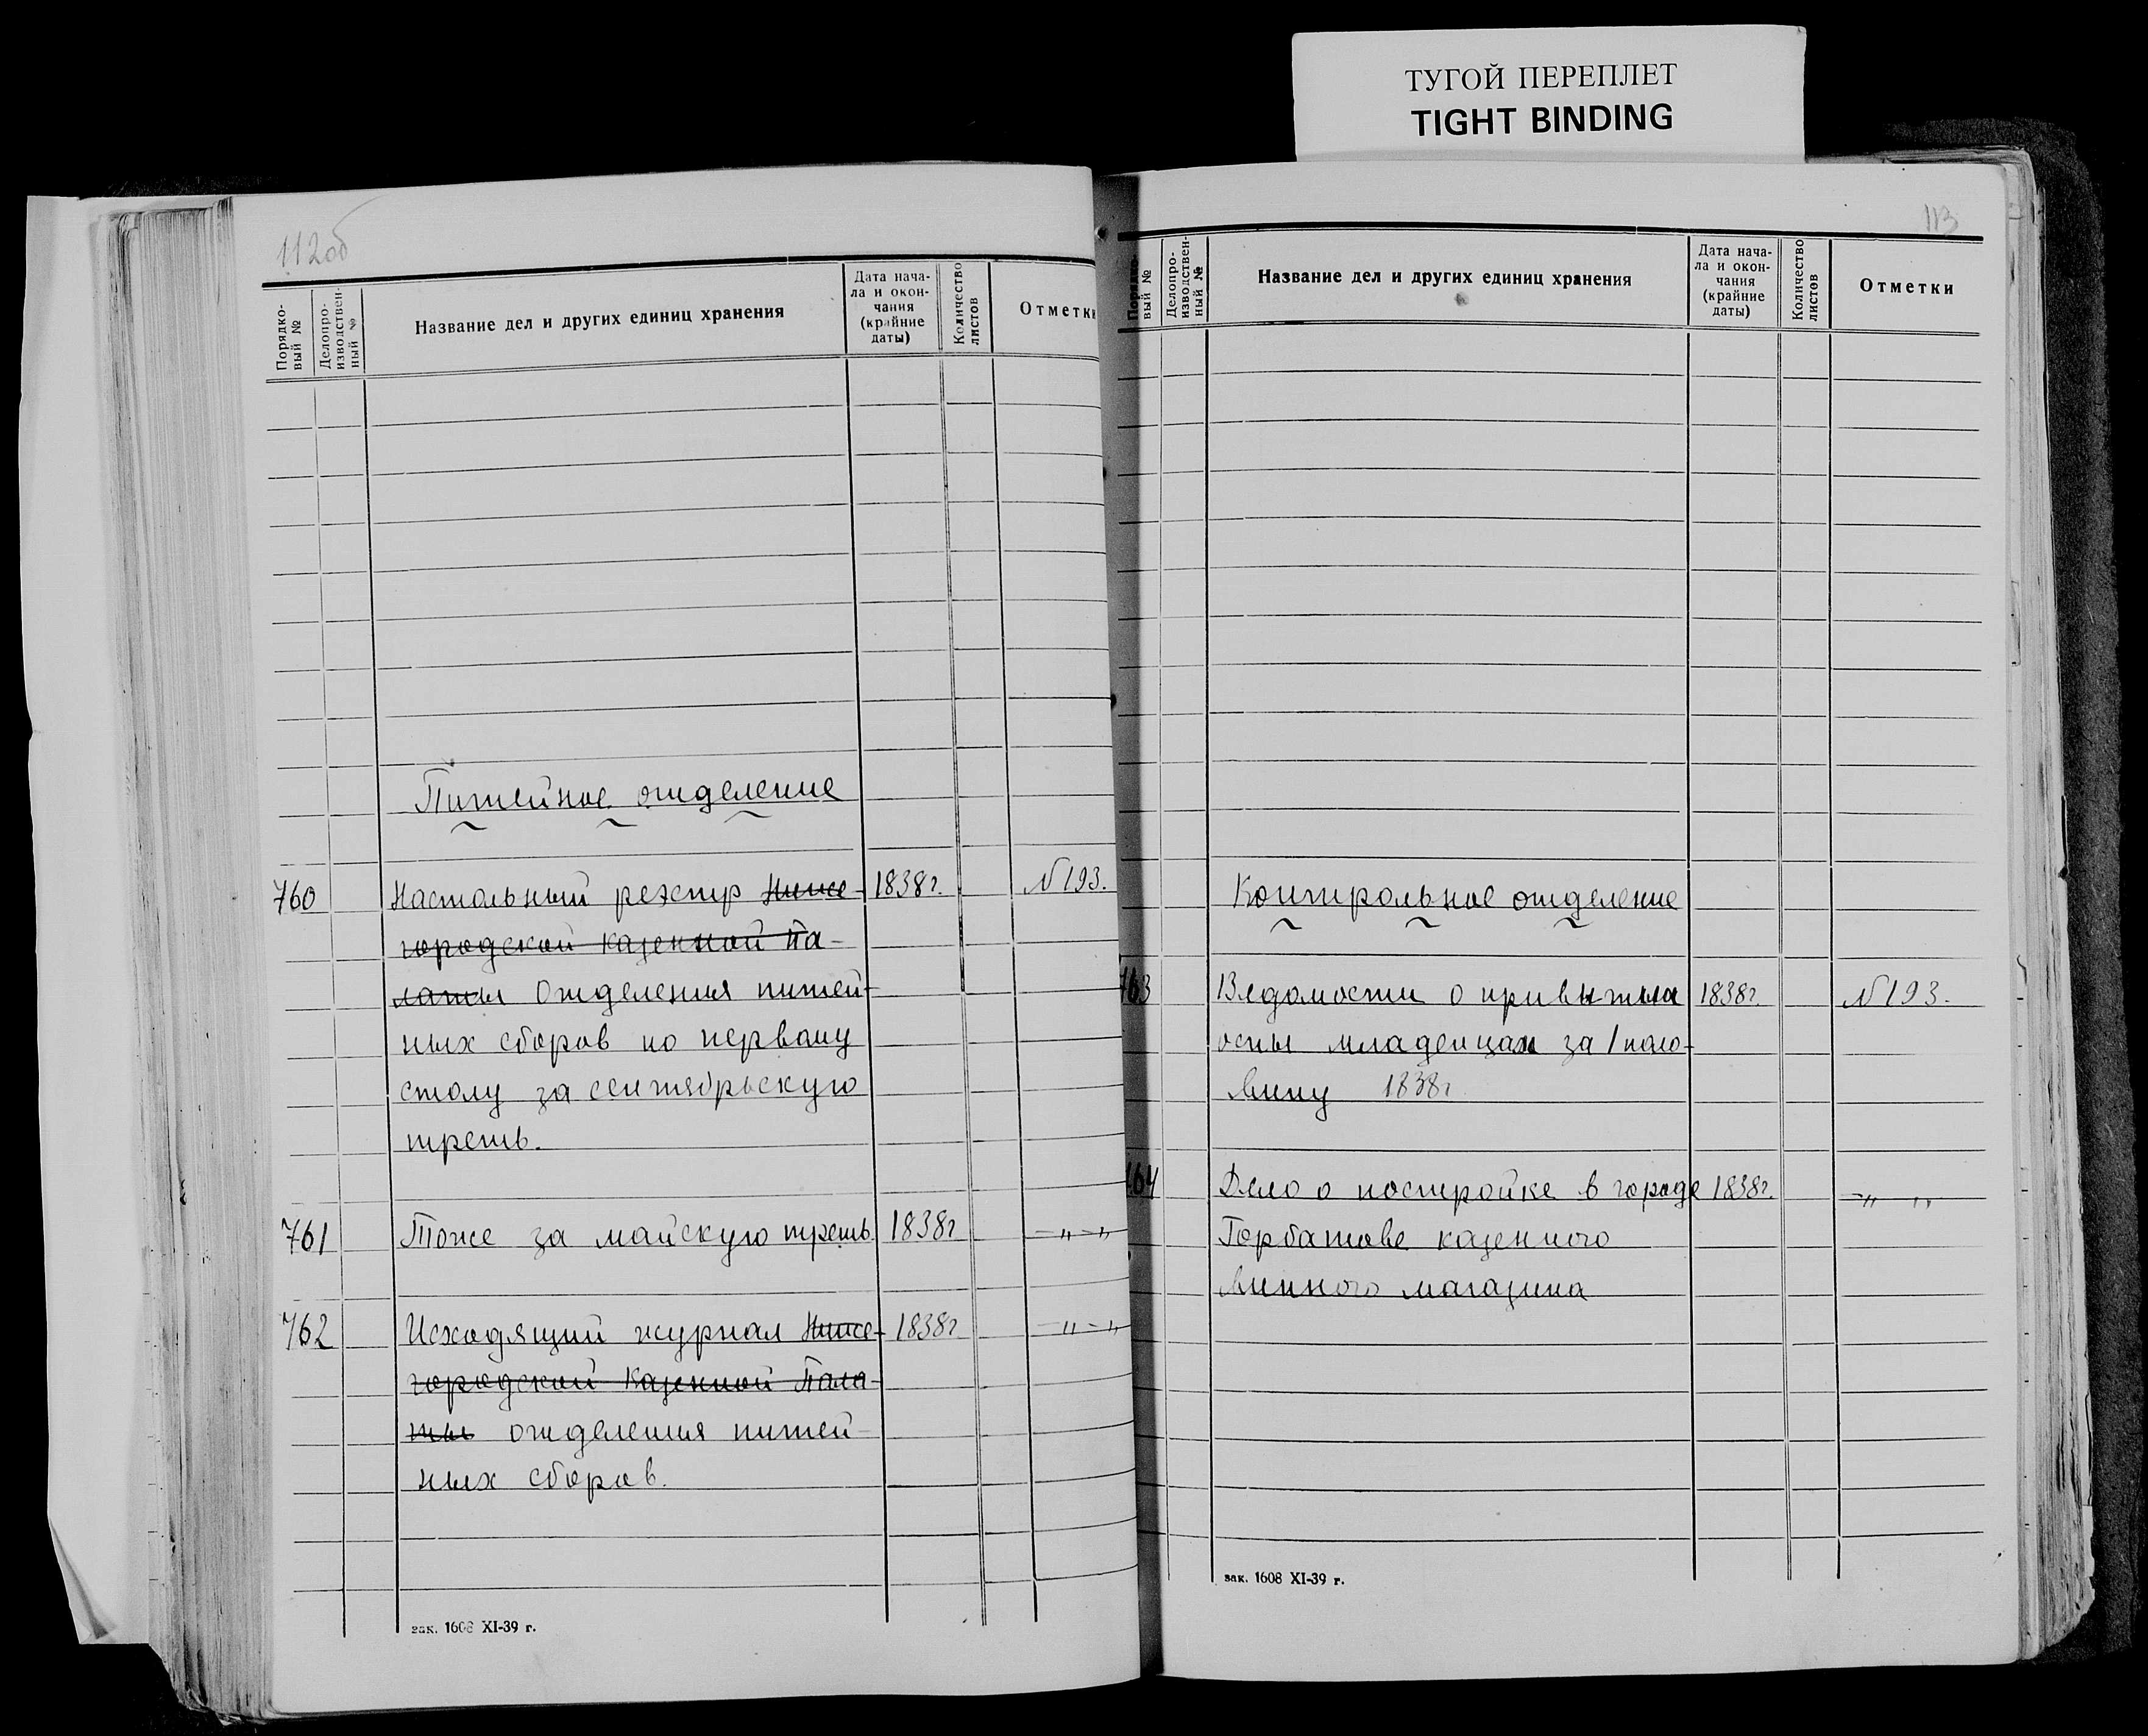 ТУГОЙ ПЕРЕПЛЕТ
TIGHT BINDING
112об
Порядко-
вый №
Делопро-
изводствен-
ный №
Название дел и других единиц хранения
Дата нача-
ла и окон-
чания
(крайние
даты)
Количество
листов
Отметки
Питейное отделение
760 Настольный реэстр Ниже- 1838г. №193.
городской казенной па-
латы Отделения питей-
ных сборов по первому
столу за сентябрьскую
треть.
761 Тоже за майскую треть. 1838г —„—„
762 Исходящий журнал Ниже- 1838г —„—„
городской Казенной Пала-
ты отделения питей-
ных сборов.
зак. 1608 XI-39 г.
113
Порядко-
вый №
Делопро-
изводствен-
ный №
Название дел и других единиц хранения
Дата нача-
ла и окон-
чания
(крайние
даты)
Количество
листов
Отметки
Контрольное отделение
763 Ведомости о привитии 1838г. №193.
оспы младенцам за 1 поло-
вину 1838г
764 Дело о постройке в городе 1838г. —„ „
Горбатове казенного
винного магазина
зак. 1608 XI-39 г.